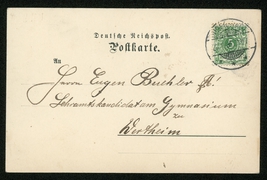 Deutsche Reichspost.
Postkarte.
An
Herrn Eugen Buchler
Lehramtskandidat am Gymnasium
zu
Wertheim
5